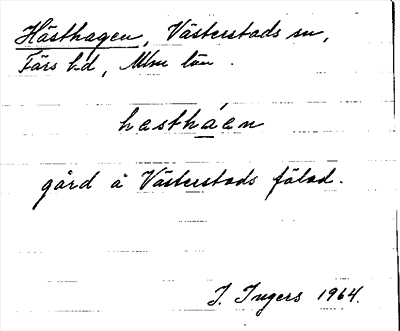 Hästhagen, Västerstads sn,
Färs hd, Mlm län.
hesthåen
gård å Västerstads fälad.
I. Ingers 1964.